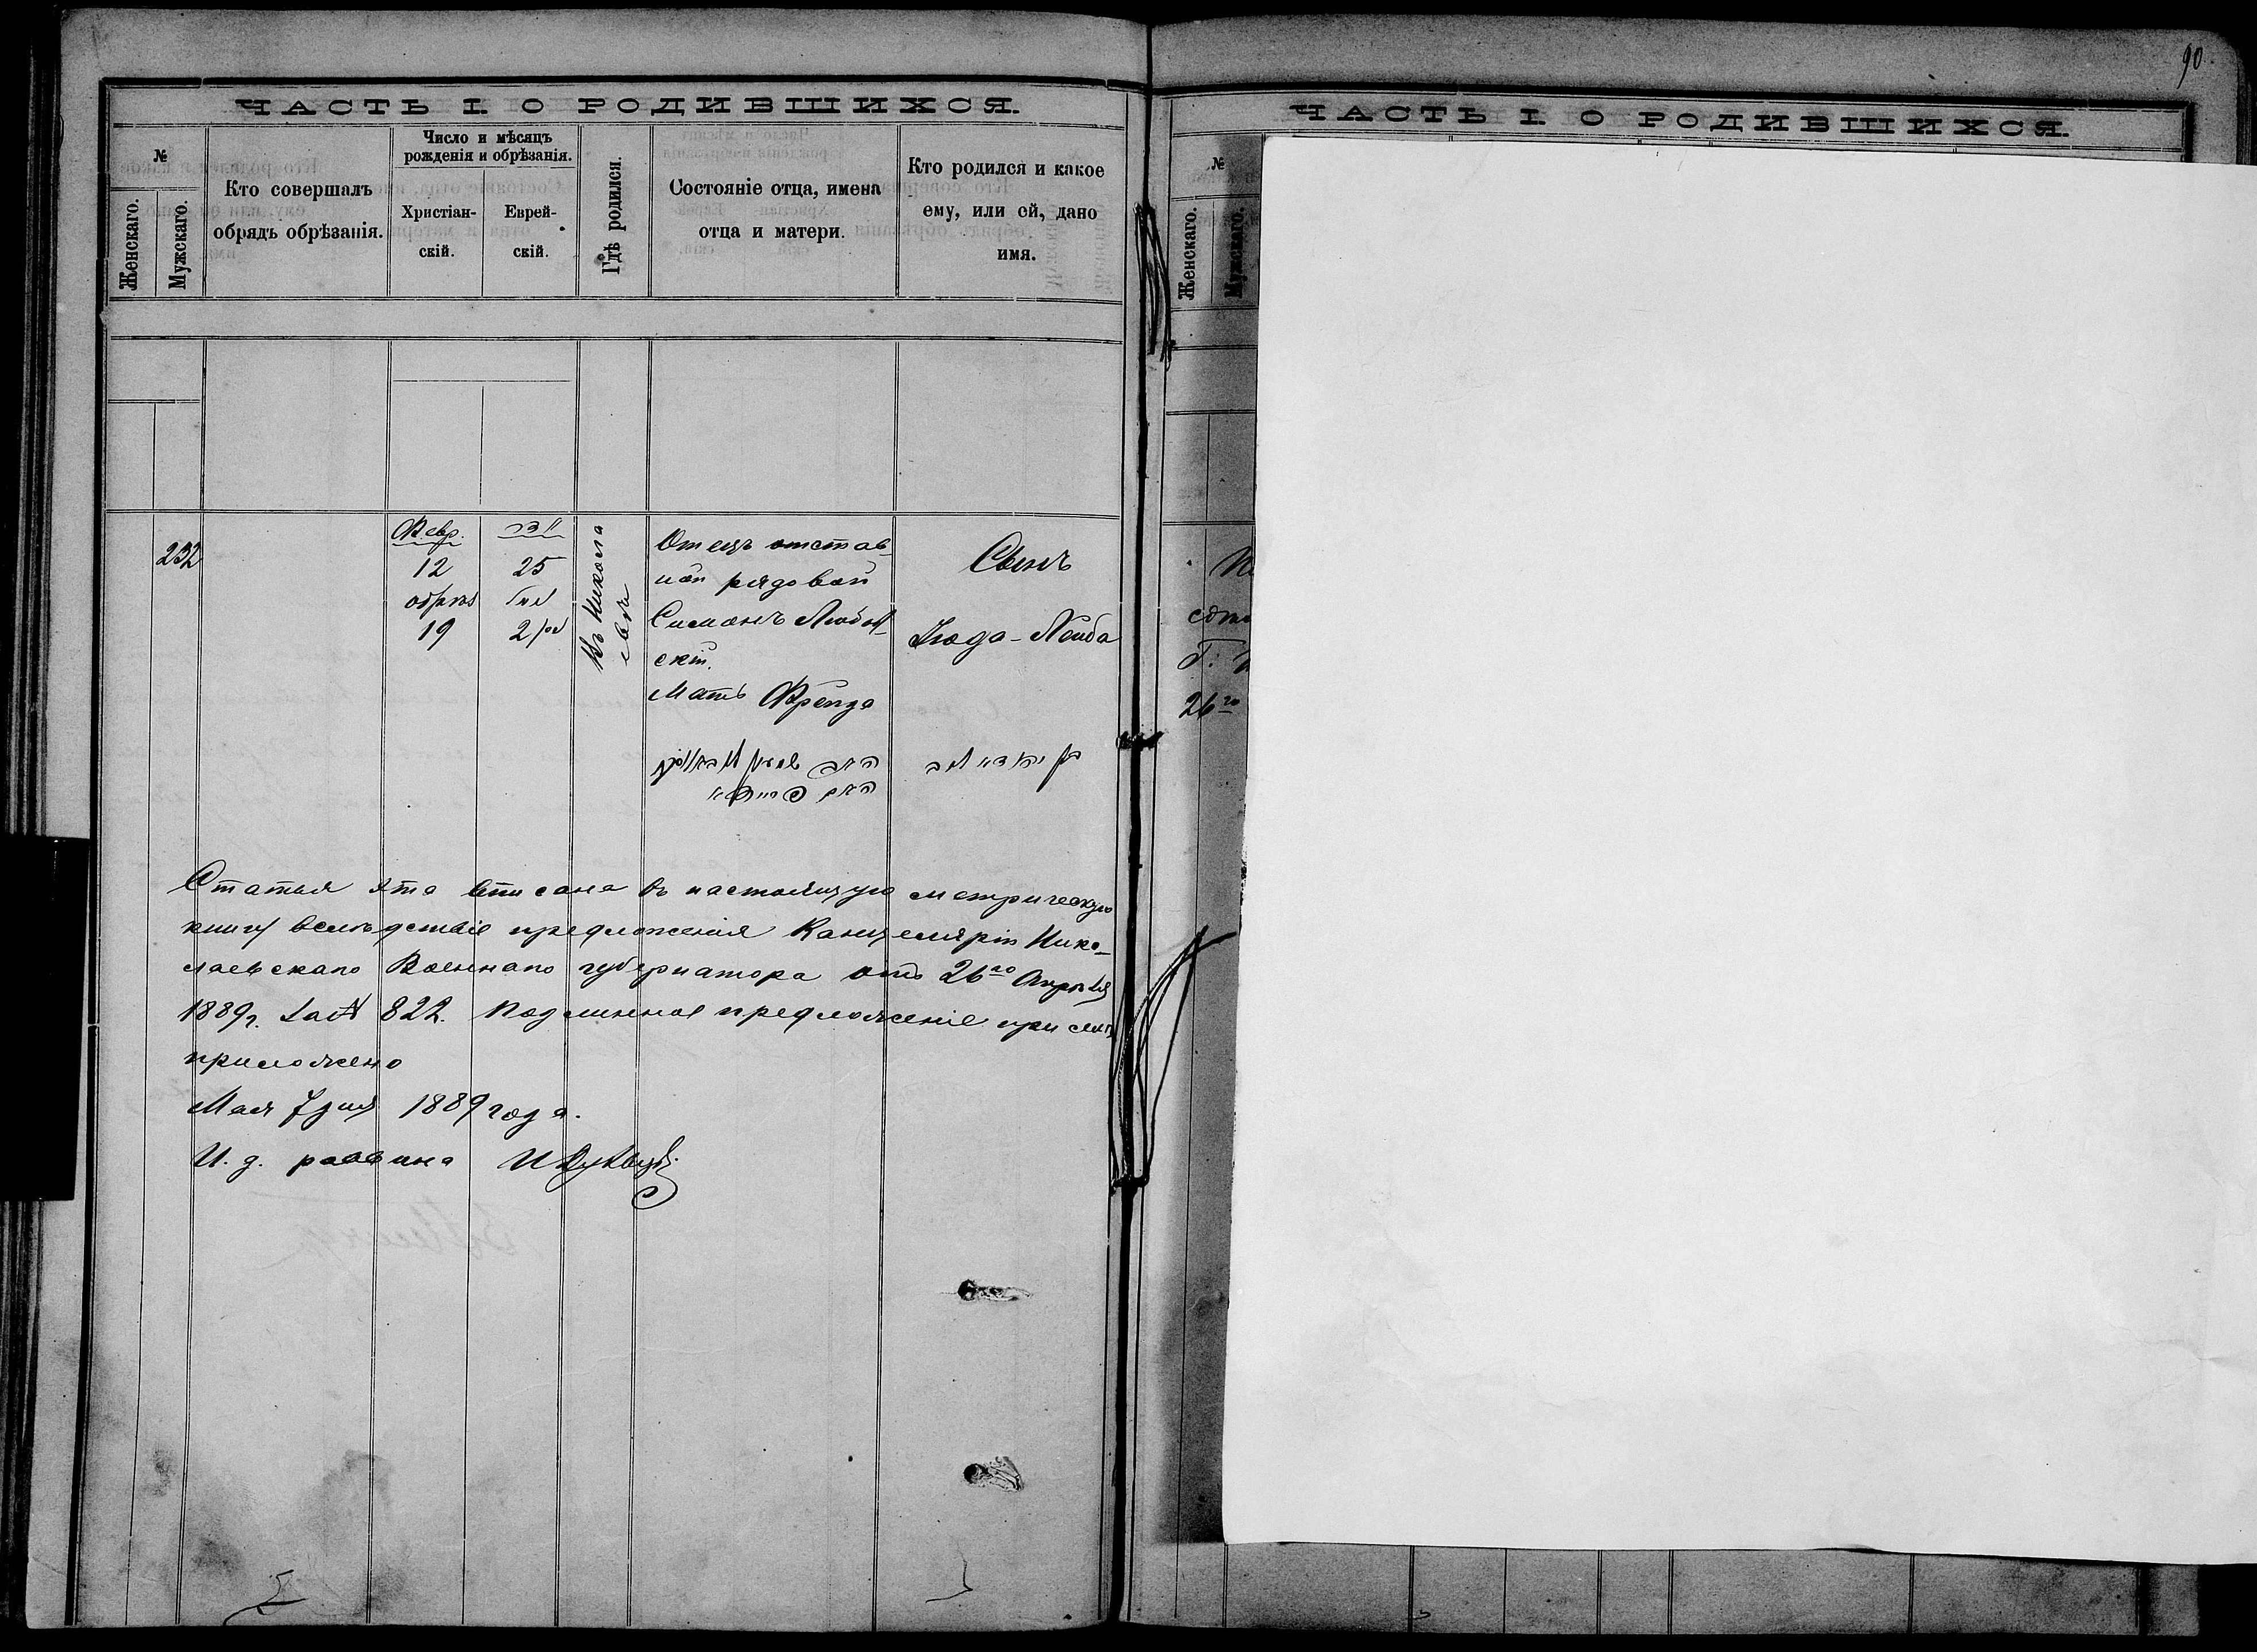 90.
ЧАСТЬ I. О РОДИВШИХСЯ.
№
Женскаго.
Мужскаго.
Кто совершалъ
обрядъ обрѣзанія.
Число и мѣсяцъ
рожденія и обрѣзанія.
Христіан-
скій.
Еврей-
скій.
Гдѣ родился.
Состояніе отца, имена
отца и матери.
Кто родился и какое
ему, или ей, дано
имя.
232
Февр.
12
обрѣз
19
25
2
Въ Никола
евѣ
Отецъ отстав-
ной рядовой
Симонъ
скій.
Мать Фрейда
Сынъ
Іюда-Лейба
Статья эта вписана въ настоящую метрическую
книгу вслѣдствіе предложенія Канцеляріи Нико-
лаевскаго Военнаго губернатора отъ 26го Апрѣля
1889г. за № 822. Подлинное предложеніе при семъ
приложено
Мая 7 дня 1889 года.
И. д. раввина
ЧАСТЬ I. О РОДИВШИХСЯ.
№
Женскаго.
Мужскаго.
26го